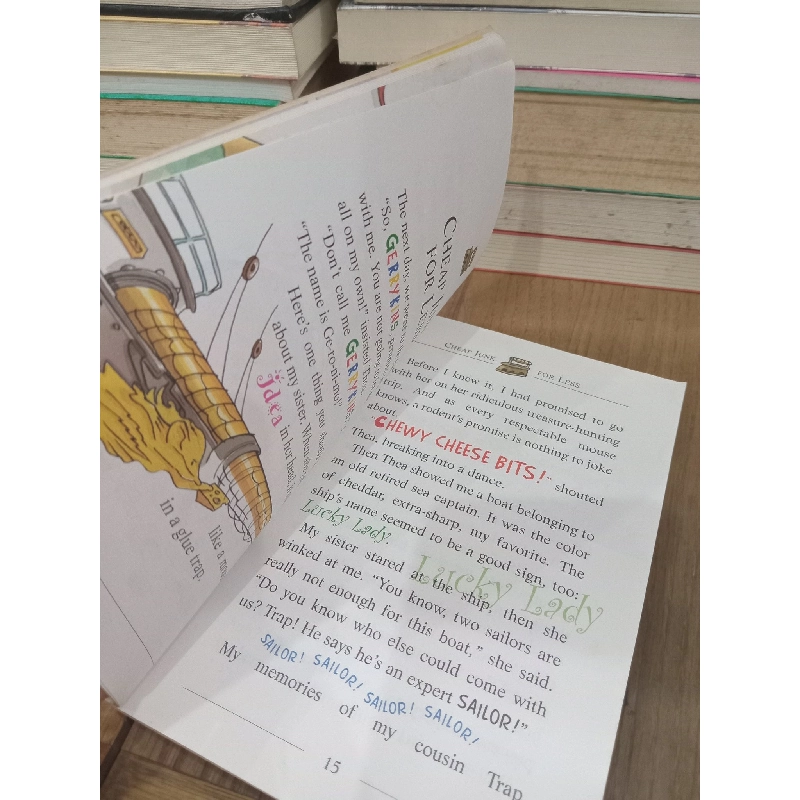 CHEAP
FOR
The next day, we
"So, GERRYKINS
with me. You are not going
all on my own!" insisted
"Don't call me GERRYKINS
"The name is Ge-ro-ni-mo!"
Here's one thing you
about my sister. When
Idea in her head,
like a
in a glue trap.
CHEAP JUNK FOR LESS
Before I know it, I had promised to go
with her on her ridiculous treasure-hunting
trip. And as every respectable mouse
knows, a rodent's promise is nothing to joke
about.
"CHEWY CHEESE BITS!" shouted
Thea, breaking into a dance.
Then Thea showed me a boat belonging to
an old retired sea captain. It was the color
of cheddar, extra-sharp, my favorite. The
ship's name seemed to be a good sign, too:
Lucky Lady.
Lucky Lady
My sister stared at the ship, then she
winked at me. "You know, two sailors are
really not enough for this boat," she said.
"Do you know who else could come with
us? Trap! He says he's an expert SAILOR!"
SAILOR! SAILOR! SAILOR! SAILOR!
My memories of my cousin Trap
15